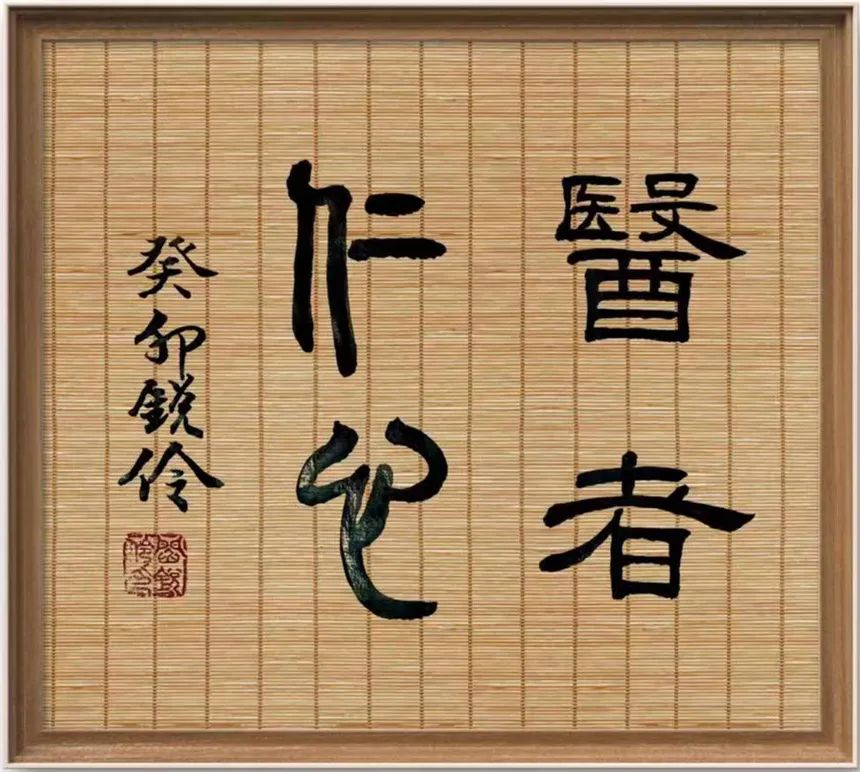 醫者
仁心
癸卯銳伶